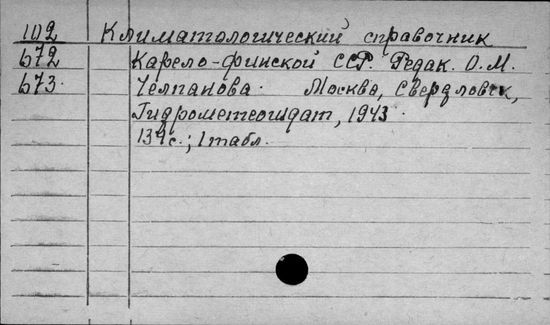 102 Климатологический справочник
672 Карело-финской ССР. Редак. О.М.
673. Челпанова. Москва, Свердловск,
Гидрометеоиздат, 1943.
139с.; 1 табл.